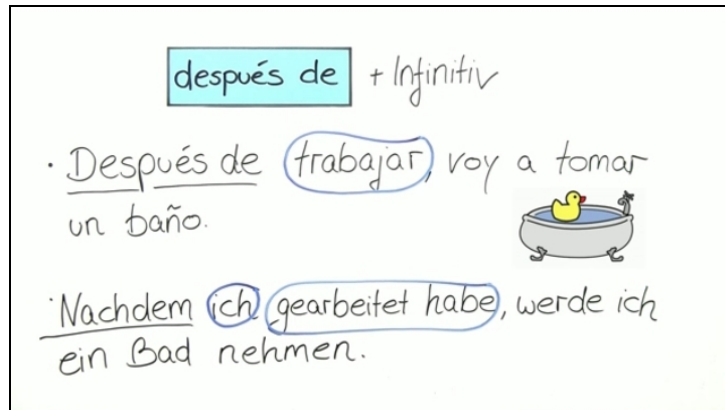 después de + Infinitiv
· Después de trabajar, voy a tomar
un baño.
· Nachdem ich gearbeitet habe, werde ich
ein Bad nehmen.